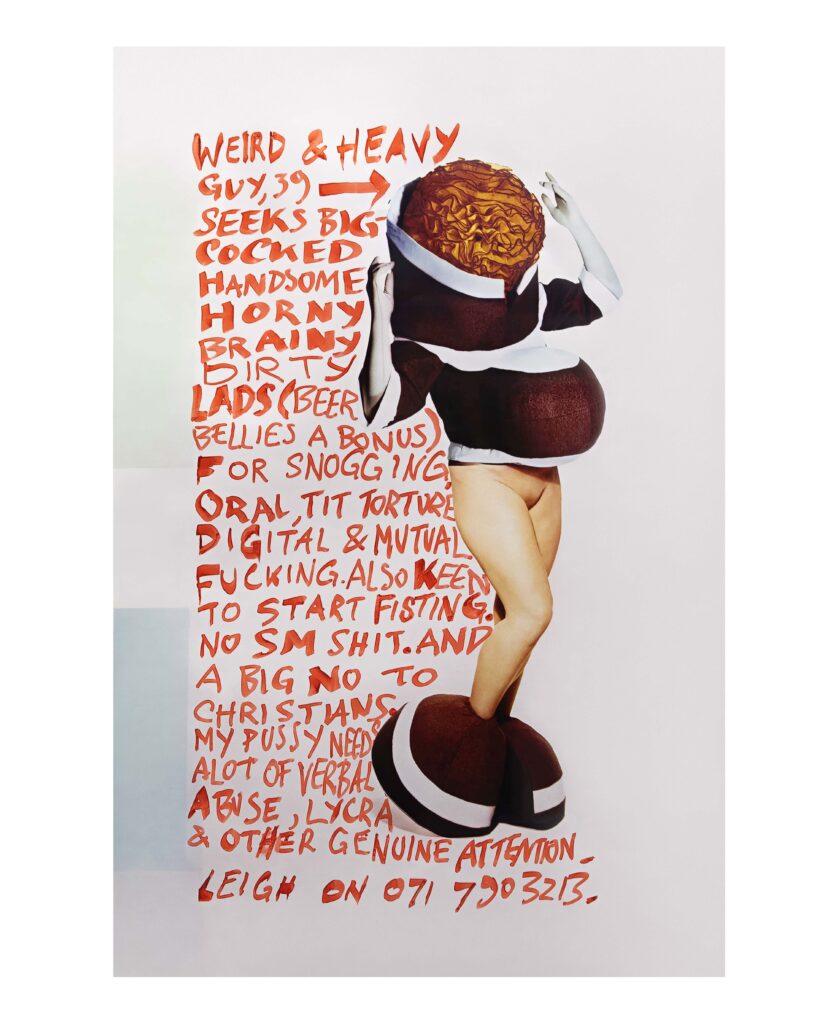 WEIRD & HEAVY
GUY, 39
SEEKS BIG-
COCKED
HANDSOME
HORNY
BRAINY
DIRTY
LADS (BEER
BELLIES A BONUS)
FOR SNOGGING,
ORAL, TIT TORTURE
DIGITAL & MUTUAL
FUCKING. ALSO KEEN
TO START FISTING.
NO SM SHIT. AND
A BIG NO TO
CHRISTIANS.
MY PUSSY NEEDS
ALOT OF VERBAL
ABUSE, LYCRA
& OTHER GENUINE ATTENTION.
LEIGH ON 071 790 3213.